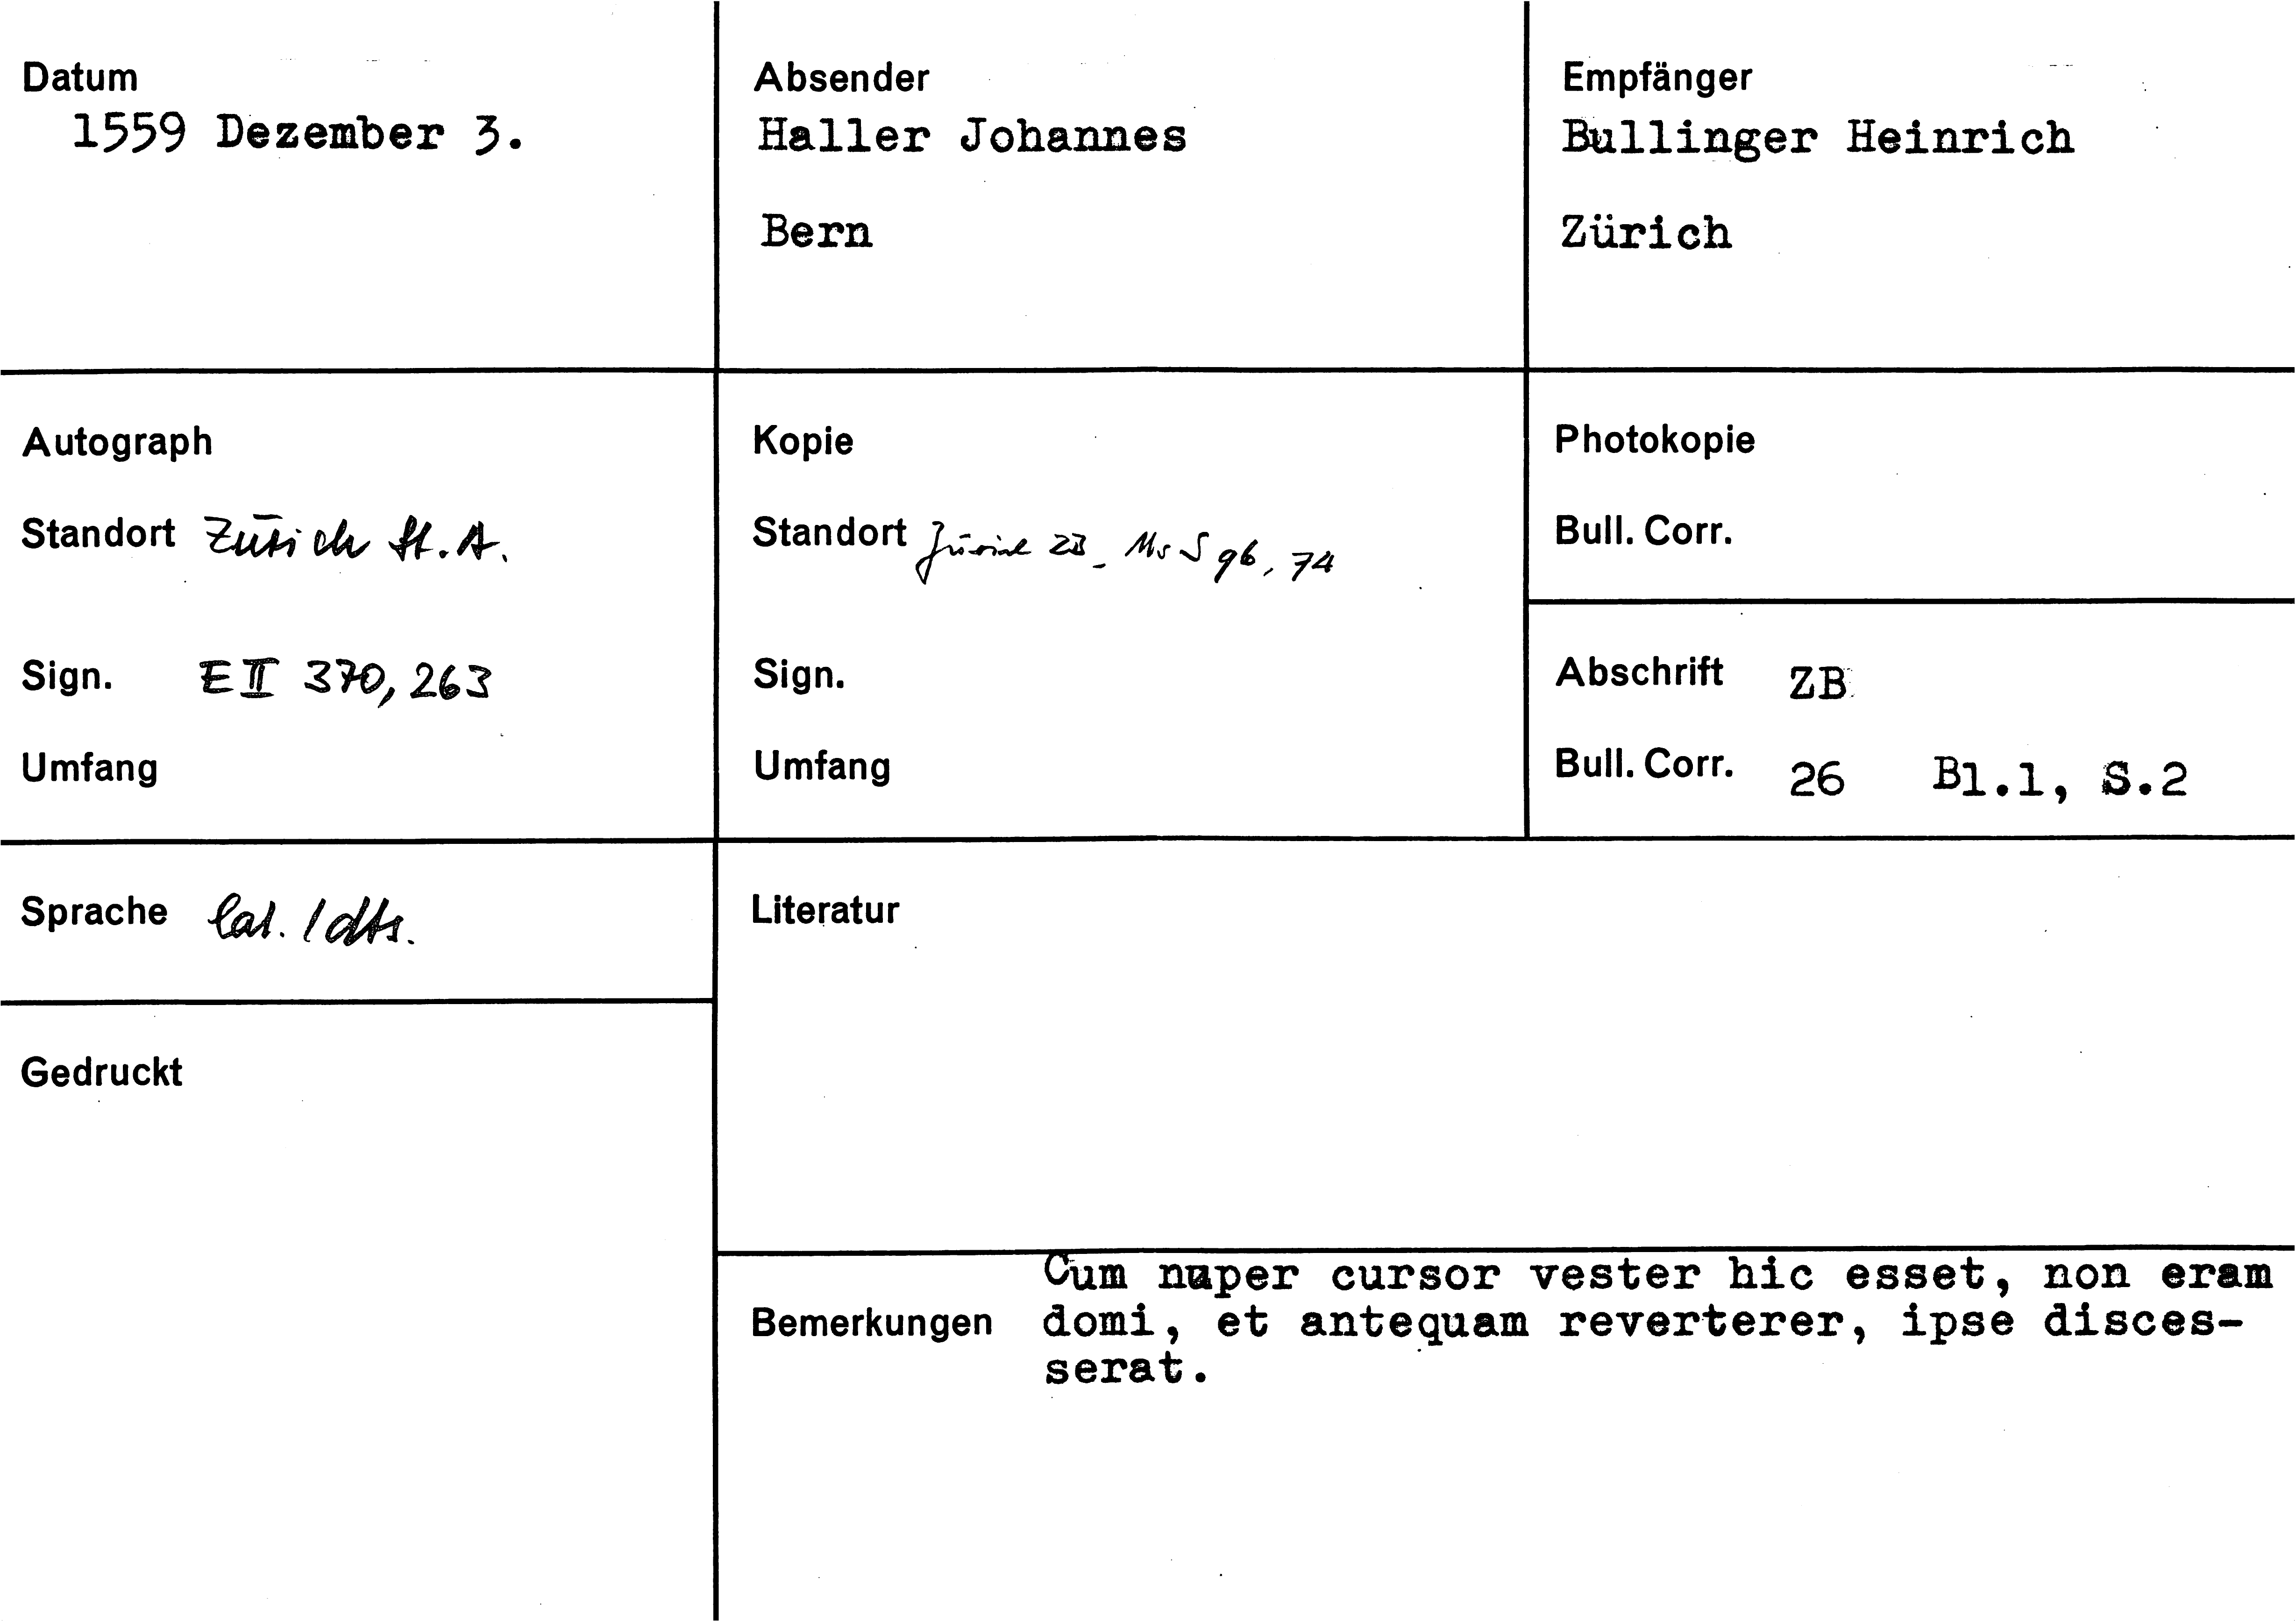 Datum
1559 Dezember 3.
Absender
Haller Johannes
Bern
Empfänger
Bullinger Heinrich
Zürich
Autograph
Standort Zürich St.A.
Sign. E II 370, 263
Umfang
Kopie
Standort Zürich ZB, Ms S 96, 74
Sign.
Umfang
Photokopie
Bull. Corr.
Abschrift ZB
Bull. Corr. 26 Bl.1, S.2
Sprache lat. / dts.
Gedruckt
Literatur
Bemerkungen
Cum nuper cursor vester hic esset, non eram
domi, et antequam reverterer, ipse disces-
serat.